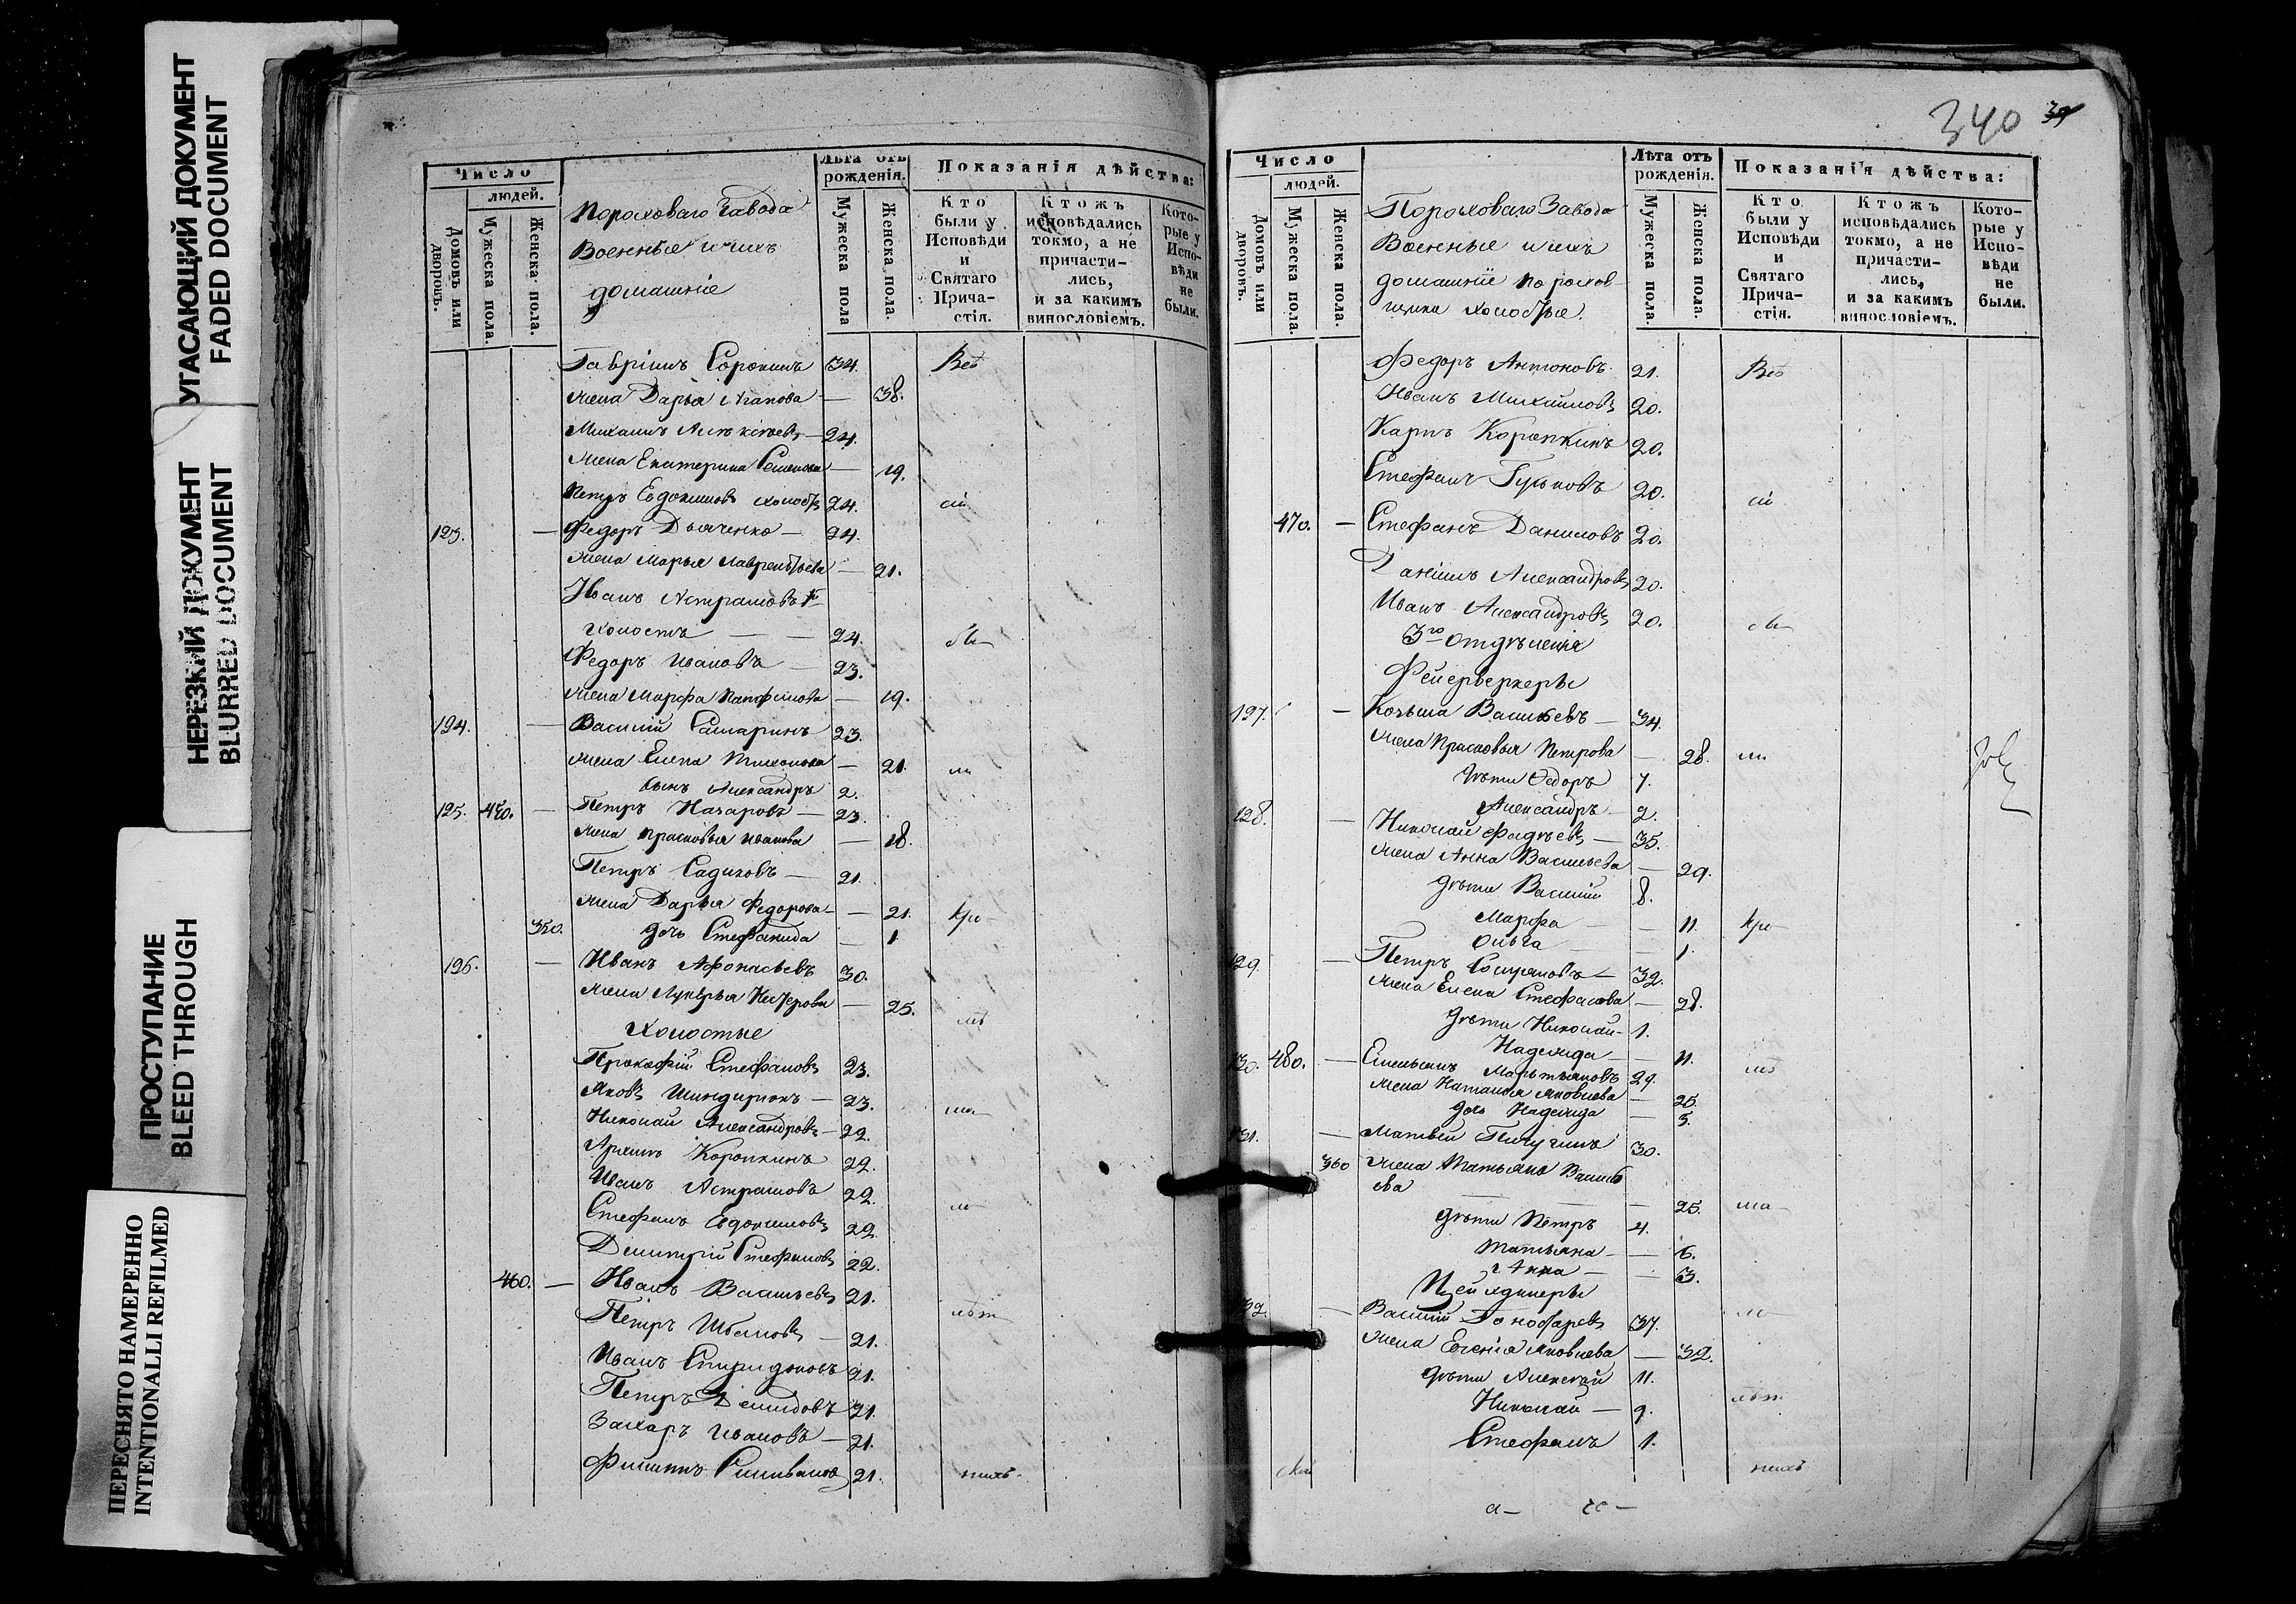 УГАСАЮЩИЙ ДОКУМЕНТ
FADED DOCUMENT
НЕРЕЗКИЙ ДОКУМЕНТ
BLURRED DOCUMENT
ПРОСТУПАНИЕ
BLEED THROUGH
ПЕРЕСНЯТО НАМЕРЕННО
INTENTIONALLI REFILMED
Число
людей.
Домовъ или дворовъ.
Мужеска пола.
Женска пола.
Пороховаго Завода
Военные и ихъ
домашніе
Лѣта отъ рожденія.
Мужеска пола
Женска пола.
Показанія дѣйства:
Кто были у Исповѣди и Святаго Прича-стія.
Ктожъ исповѣдались токмо, а не причасти-лись, и за какимъ винословіемъ.
Кото-рые у Испо-вѣди не были.
Гавріилъ Сорокинъ 34. Всѣ
жена Дарья — 38.
Михаилъ Алексѣевъ — 24.
жена Екатерина Семенова — 19.
Петръ Евдокимовъ холостъ 24. сіи
123. — Федоръ Дьяченко — 24.
жена Марья Лаврентьева — 21.
Иванъ Астрамовъ
холостъ — — 24. бы
Федоръ Ивановъ — 23.
жена Марфа Панфилова — 19.
124. — Василій Самаринъ 23.
жена Елена Тихонова — 21. ли
сынъ Александръ 2.
125. 450. — Петръ Назаровъ — 23.
жена Прасковья Иванова — 18.
Петръ Садиковъ — 21.
жена Дарья Федорова — 21. кро-
350. дочь Стефанида — 1
126. — Иванъ Афонасьевъ 30.
жена Лукерья Нестерова — 25.
Холостые мѣ
Прокофій Стефановъ 23.
Яковъ — 23. ма
Николай Александровъ — 22.
Коропкинъ 22.
Иванъ Астрамовъ 22.
Стефанъ Евдокимовъ 22. ло
Димитрій Стефановъ 22.
460. — Иванъ Васильевъ 21.
Петръ — 21. лѣт
Иванъ Спиридоновъ 21.
Петръ Демидовъ 21.
Захаръ Ивановъ — 21.
Филиппъ Силивановъ 21. нихъ
340
Число
людей.
Домовъ или дворовъ.
Мужеска пола.
Женска пола.
Пороховаго Завода
Военные и ихъ
домашніе порохов-
щики холостые.
Лѣта отъ рожденія.
Мужеска пола.
Женска пола.
Показанія дѣйства:
Кто были у Исповѣди и Святаго Прича-стія.
Ктожъ исповѣдались токмо, а не причасти-лись, и за какимъ винословіемъ.
Кото-рые у Испо-вѣди не были.
Федоръ Антоновъ 21. Всѣ
Иванъ Михайловъ 20.
Карпъ Коропкинъ 20.
Стефанъ Гуськовъ 20. сіи
470. — Стефанъ Даниловъ 20.
Даніилъ Александровъ 20.
Иванъ Александровъ 20. бы
3го отдѣленія
Фейерверкеры
127. — Козьма Васильевъ — 34.
жена Прасковья Петрова — 28. ли
дѣти Ѳедоръ 7.
Александръ 2.
128. — Николай Фадѣевъ — 35.
жена Анна Васильева — 29.
дѣти Василій 8.
Марфа — — 11. кро-
Ольга — 1.
129. — Петръ — 32.
жена Елена Стефанова — 28.
дѣти Николай — 1.
Надежда — 11.
130. 480. — Емельянъ Мартьяновъ 29. мѣ
жена Наталья Яковлева — 25.
дочь Надежда — 5.
131. — Матвей Пичугинъ 30.
360 жена Татьяна Василь
ева — — 25. ма
дѣти Петръ 4.
Татьяна — — 6.
Анна — — 3.
132. — Василій 37. ло
жена Евгенія Яковлева — 32.
дѣти Алексѣй 11.
Николай — 9. лѣт
Стефанъ 1.
нихъ